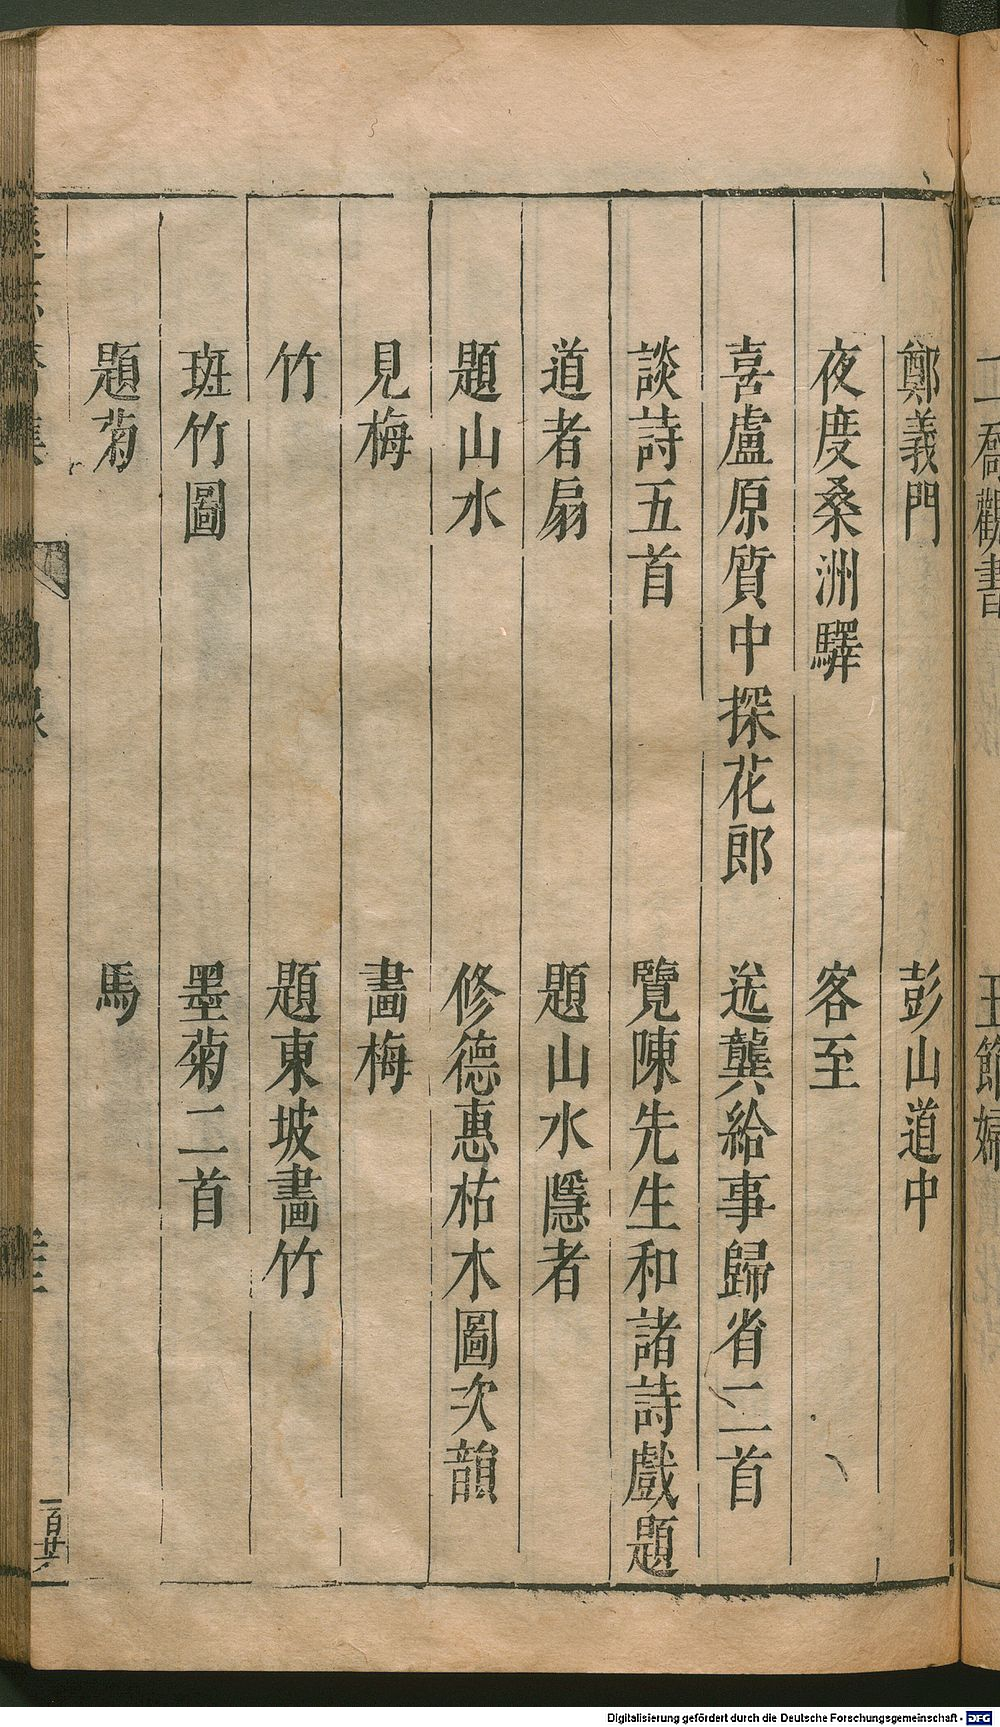 鄭義門 彭山道中
夜度桑洲驛 客至
喜盧原質中探花郎 送龔給事歸省二首
談詩五首 覽陳先生和諸詩戲題
道者扇 題山水隱者
題山水 修德惠枯木圖次韻
見梅 畫梅
竹 題東坡畫竹
斑竹圖 墨菊二首
題菊 馬
一百廿
Digitalisierung gefördert durch die Deutsche Forschungsgemeinschaft - DFG